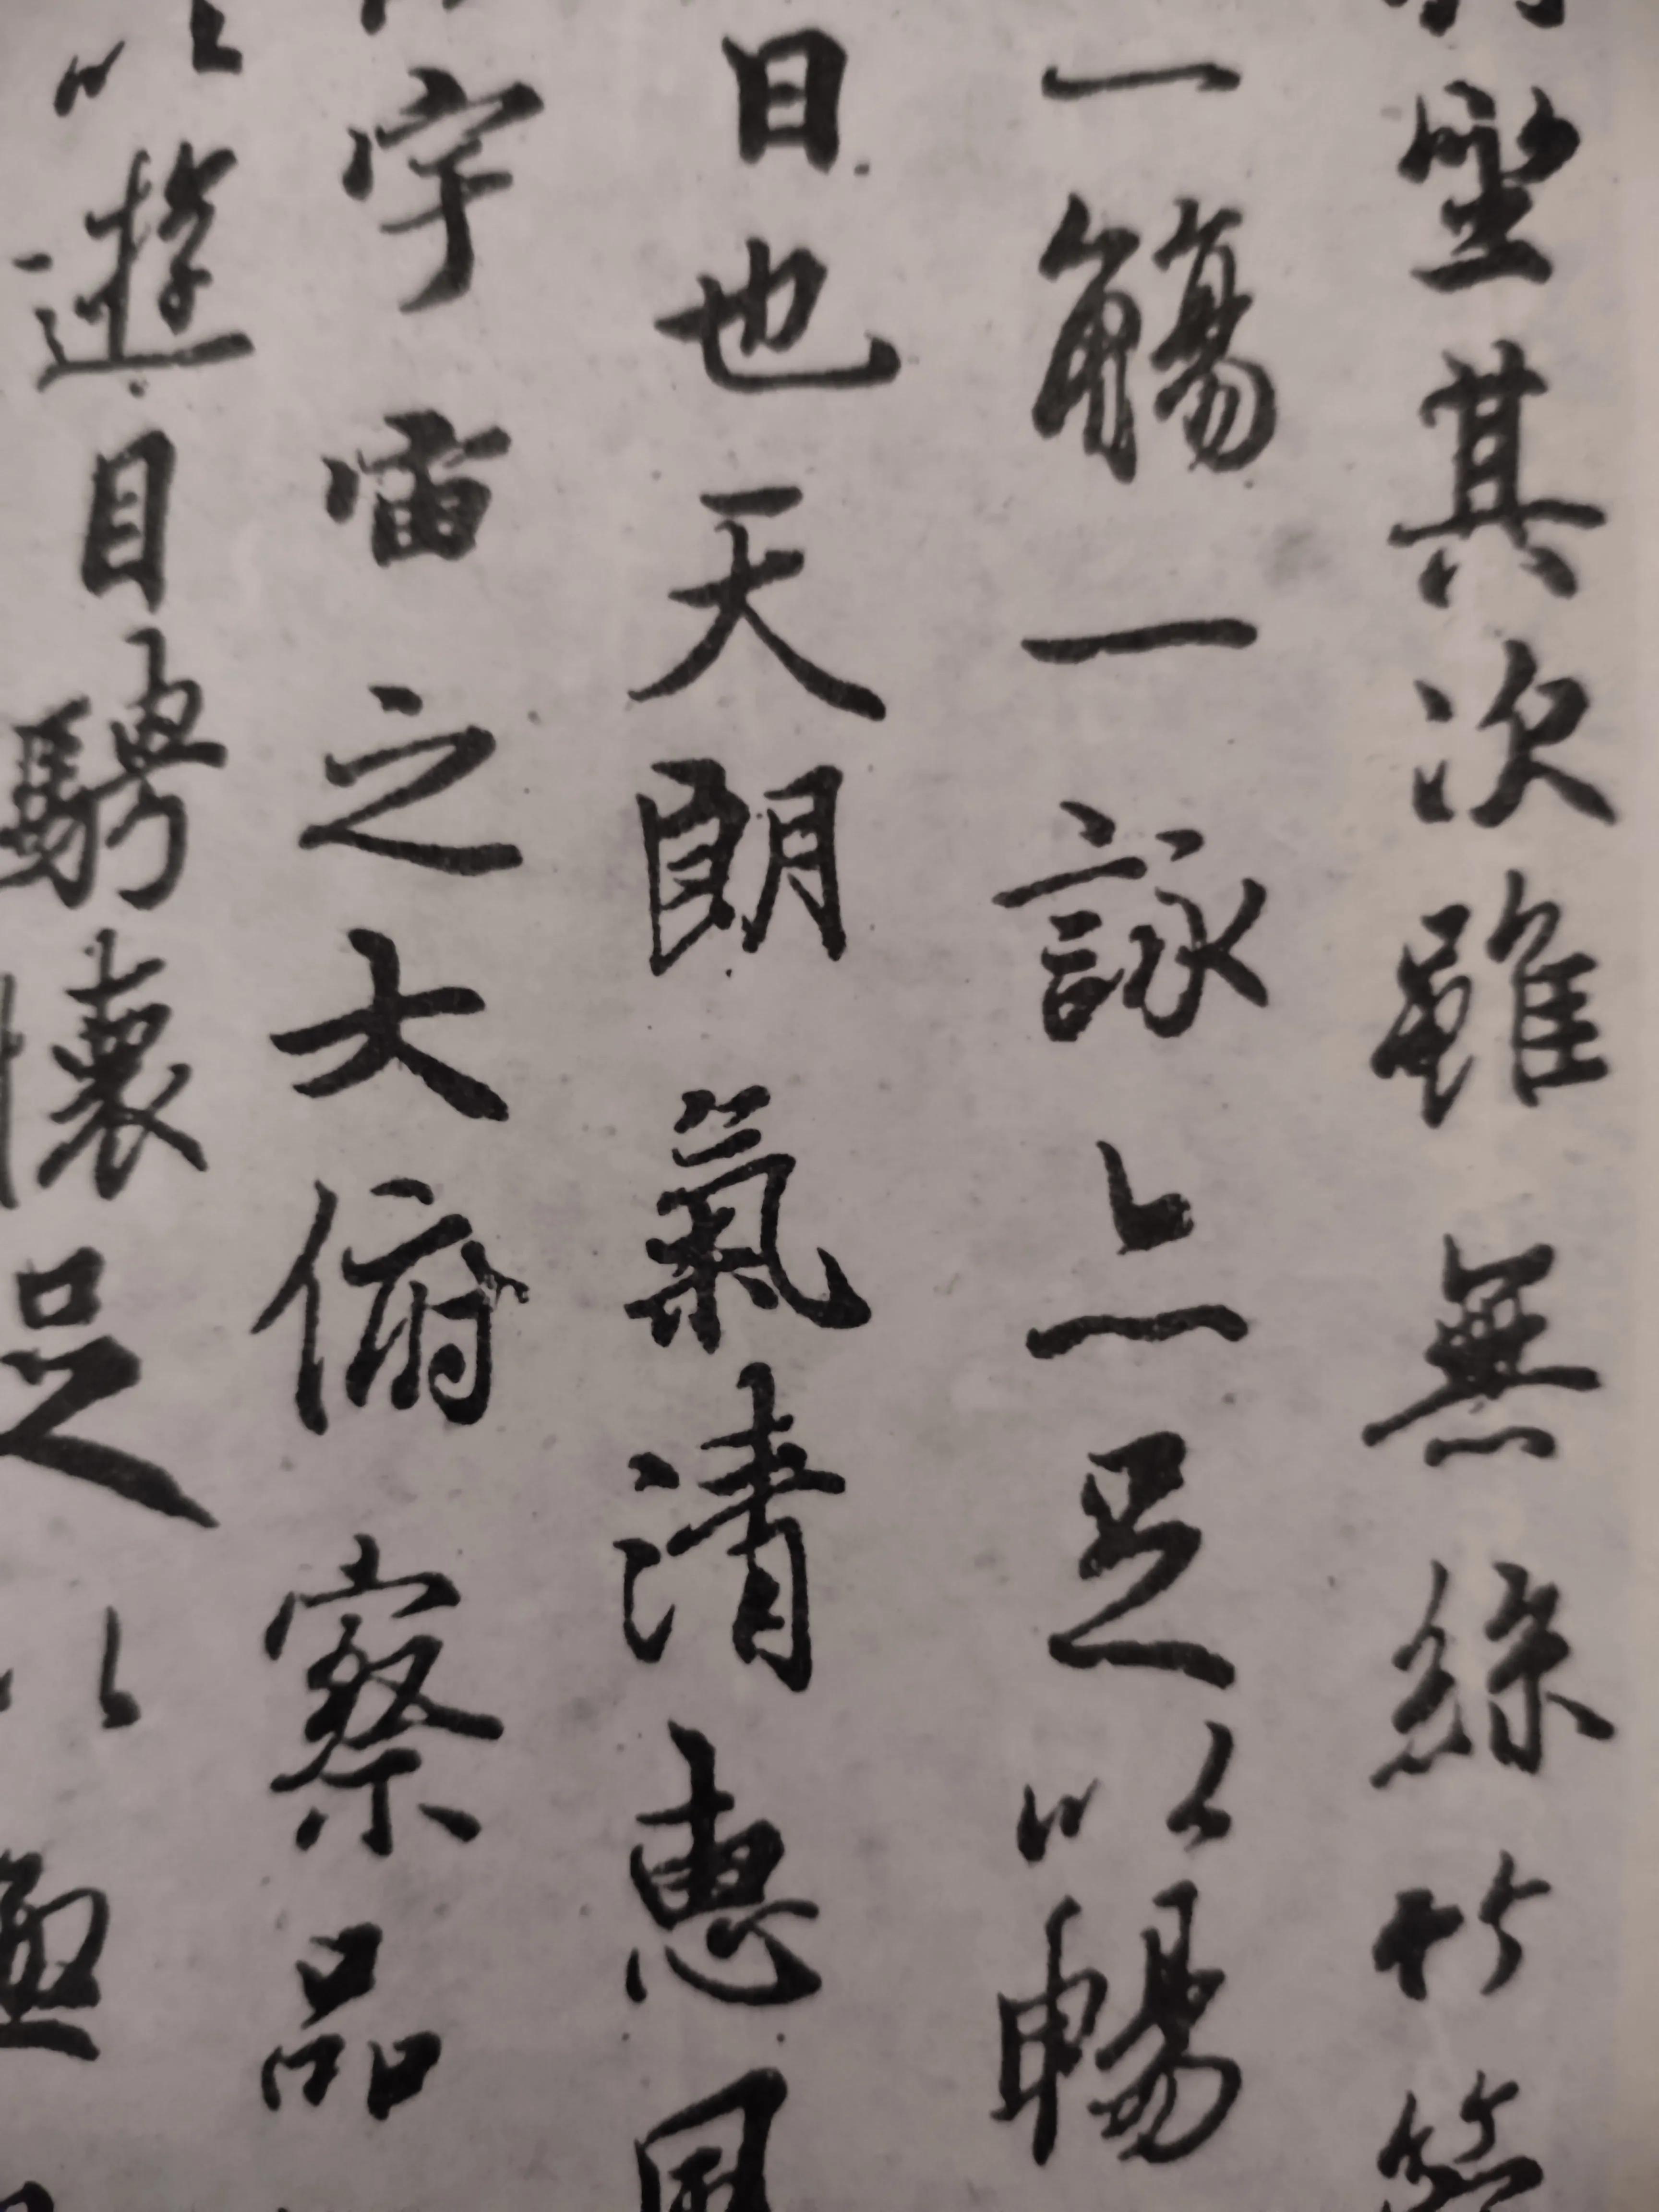 坐其次雖無絲竹管
一觴一詠亦足以暢
日也天朗氣清惠風
宇宙之大俯察品
以遊目騁懷足以極